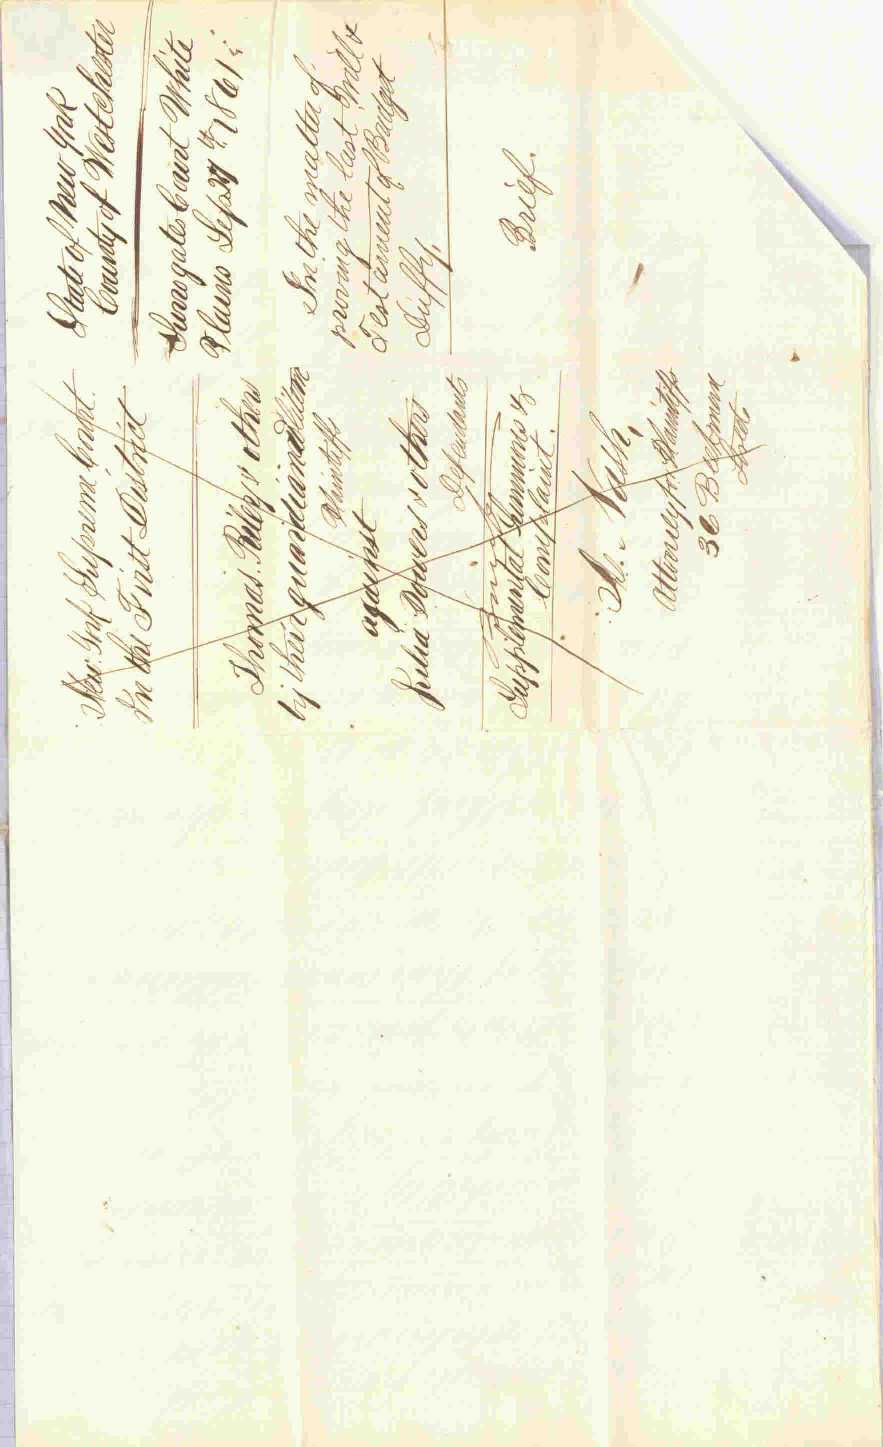 State of New York
County of Westchester
Surrogates Court White
Plains Sept 1861;
In the matter of
proving the last Will &
Testament of Bridget
Duffy,
Brief.
New York Supreme Court.
In the First District
Thomas Riley & others
by their guardian
Plaintiffs
against
Julia Powers & others
Defendants
Copy
Supplemental Summons &
Complaint.
Nash,
Attorney for Plaintiffs
36 Beekman